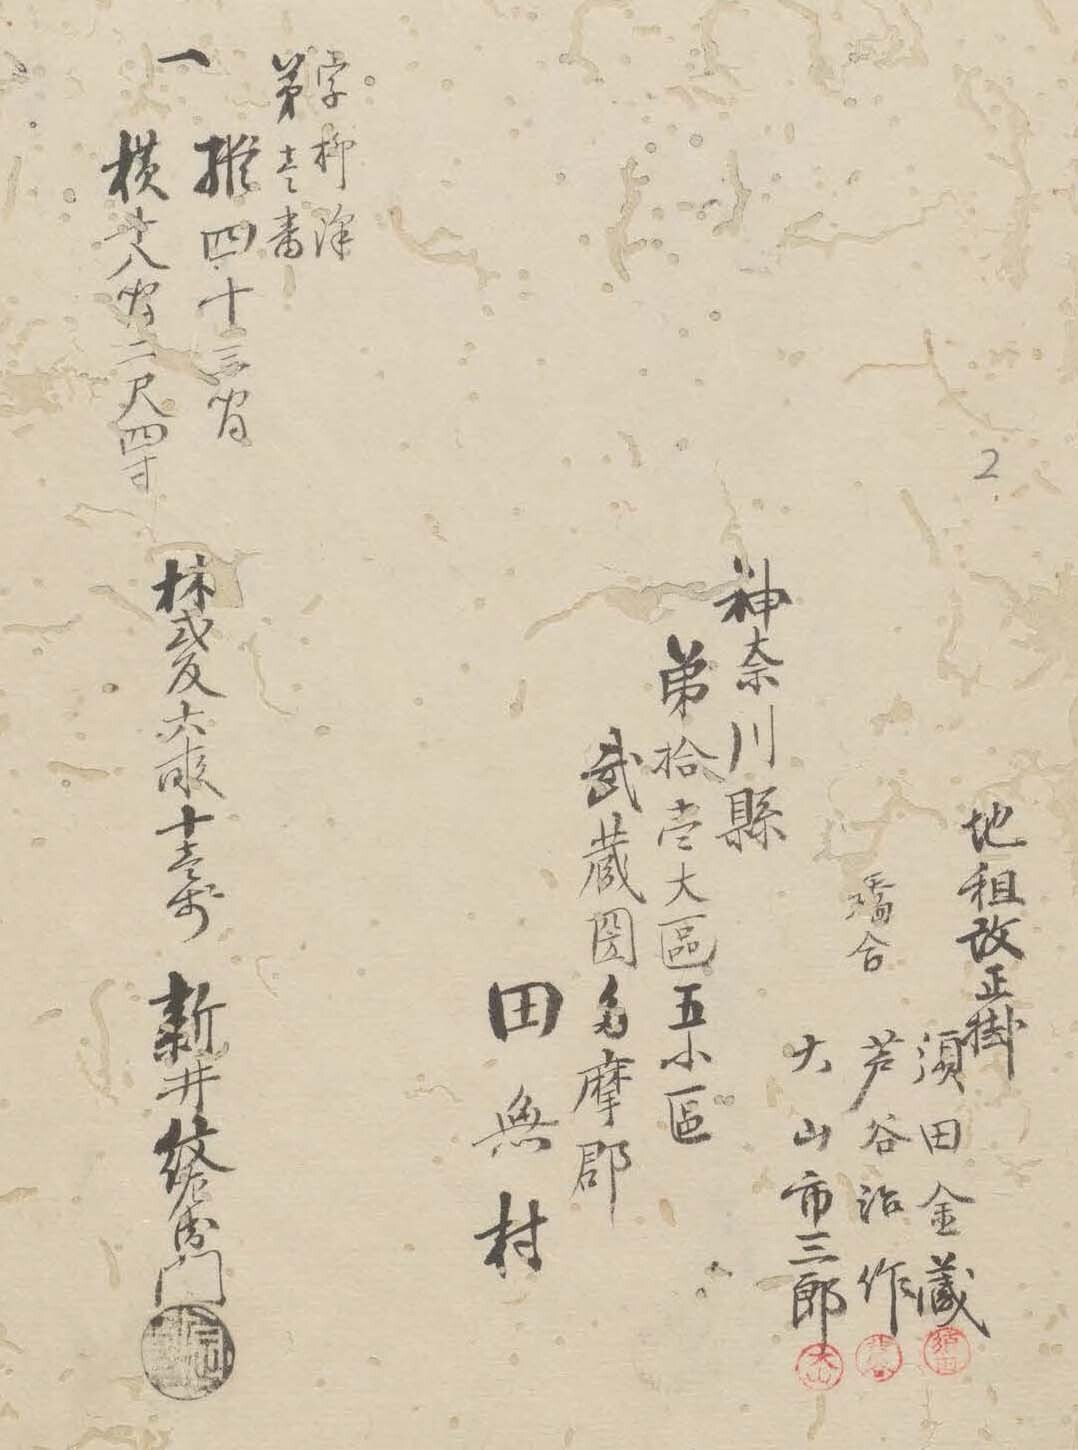 2
地租改正掛
須田金蔵
芦谷治作
大山市三郎
大山
神奈川縣
第拾壱大區五小區
武蔵国多摩郡
田無村
字柳澤
第壱番
一 縦四十三間
横十八間二尺四寸
林弐反六畝十壱歩
新井紋右衛門